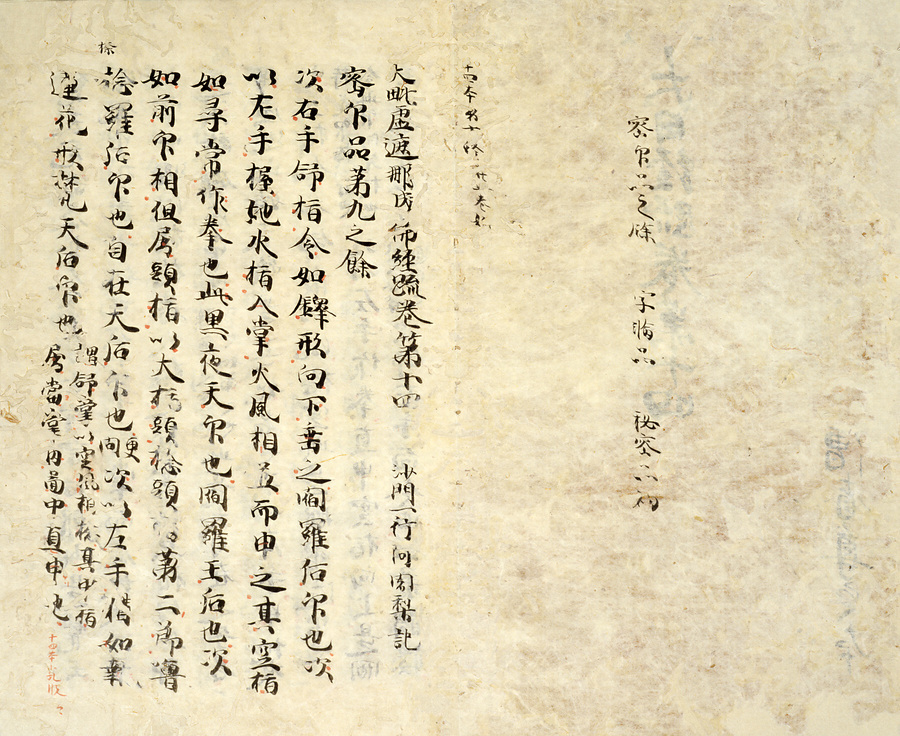 密印品之餘 字輪品 秘密品初
大毗盧遮那成佛經疏卷第十四 沙門一行阿闍梨記
密印品第九之餘
次右手舒指令如鐸形向下垂之閻羅后印也次
以左手握地水指入掌火風相並而申之其空指
如尋常作拳也此黑夜天印也閻羅王后也次
如前印相但屈頭指以大指頭捻頭 第二節嚕
捺羅后印也自在天后印也 更問 次以左手作如
蓮花形梵天后印也 謂舒掌以空風相捻其中指
屈當掌內 中直申也
捺